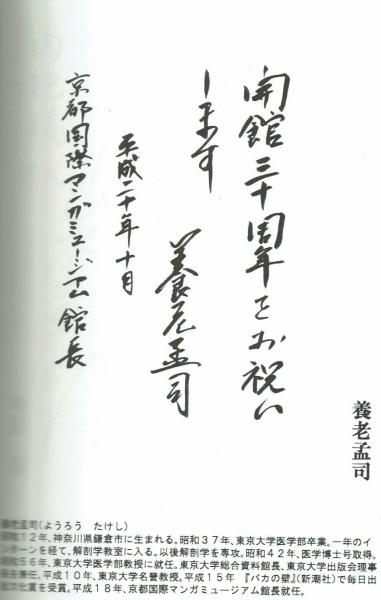 養老孟司
開館三十周年をお祝い
します
養老孟司
平成二十年十月
京都国際マンガミュージアム館長
老孟司(ようろう たけし)
12年、神奈川県鎌倉市に生まれる。昭和37年、東京大学医学部卒業。一年のイ
ターンを経て、解剖学教室に入る。以後解剖学を専攻。昭和42年、医学博士号取得。
56年、東京大学医学部教授に就任。東京大学総合資料館長、東京大学出版会理事
兼任。平成10年、東京大学名誉教授。平成15年 『バカの壁』(新潮社)で毎日出
文化賞を受賞。平成18年、京都国際マンガミュージアム館長就任。